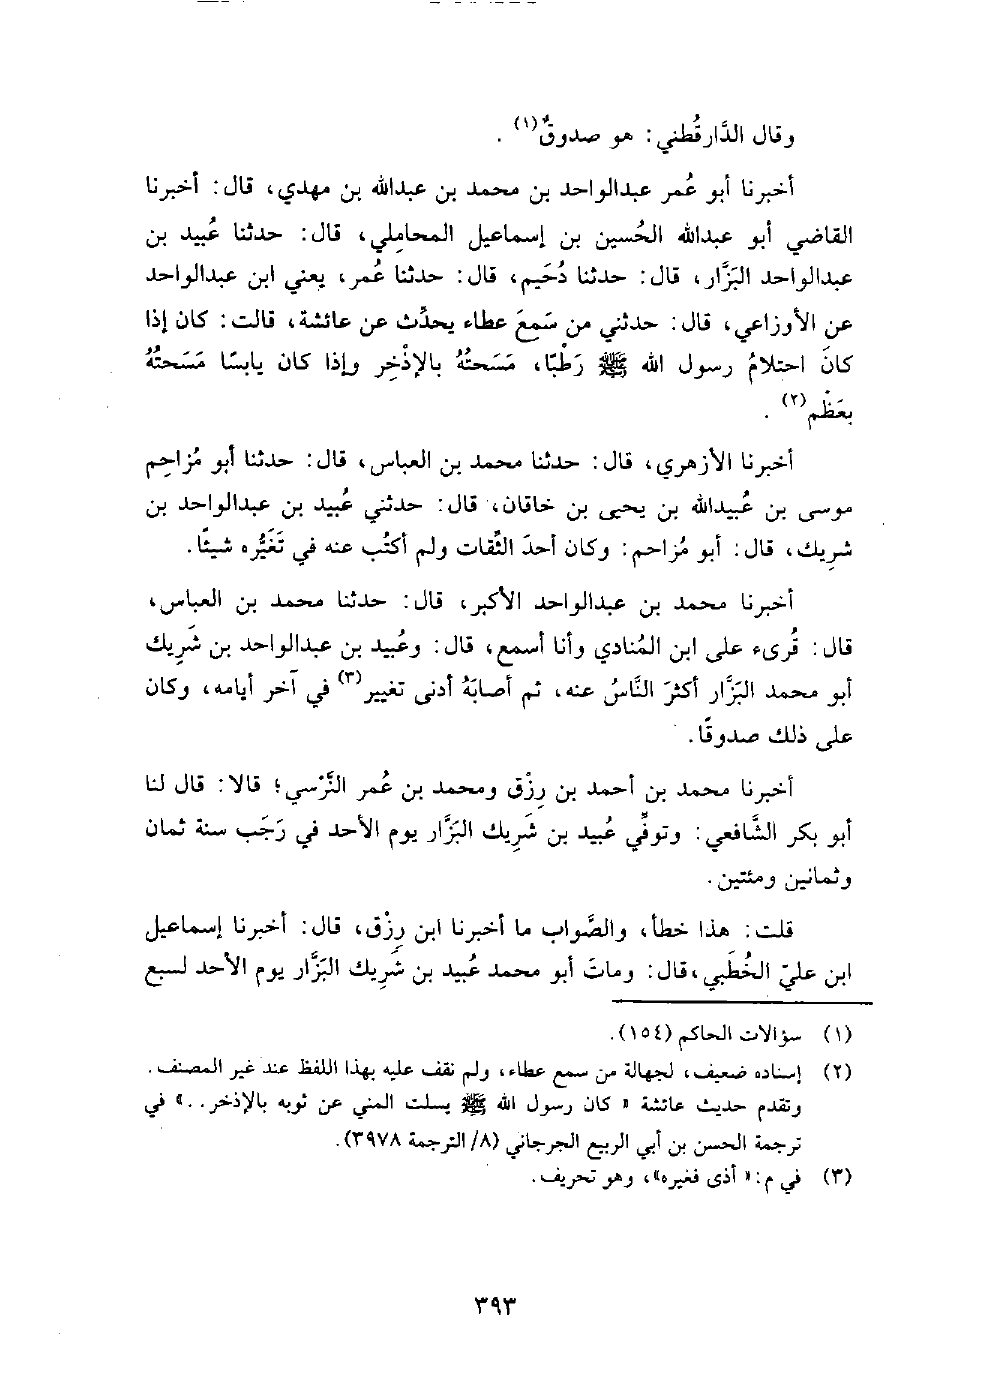 وقال الدَّارقُطني: هو صدوقٌ(١) .
أخبرنا أبو عُمر عبدالواحد بن محمد بن عبدالله بن مهدي، قال: أخبرنا
القاضي أبو عبدالله الحُسين بن إسماعيل المحامِلي، قال: حدثنا عُبيد بن
عبدالواحد البَزَّار، قال: حدثنا دُحَيم، قال: حدثنا عُمر، يعني ابن عبدالواحد
عن الأوزاعي، قال: حدثني من سَمِعَ عطاء يحدِّث عن عائشة، قالت: كان إذا
كانَ احتلامُ رسول الله ﷺ رَطْبًا، مَسَحتُهُ بالإذْخِر وإذا كان يابسًا مَسَحتُهُ
بعَظْم(٢) .
أخبرنا الأزهري، قال: حدثنا محمد بن العباس، قال: حدثنا أبو مُزاحِم
موسى بن عُبيدالله بن يحيى بن خاقان، قال: حدثني عُبيد بن عبدالواحد بن
شرِيك، قال: أبو مُزاحم: وكان أحدَ الثِّقات ولم أكتُب عنه في تَغَيُّره شيئًا.
أخبرنا محمد بن عبدالواحد الأكبر، قال: حدثنا محمد بن العباس،
قال: قُرىء على ابن المُنادي وأنا أسمع، قال: وعُبيد بن عبدالواحد بن شَرِيك
أبو محمد البَزَّار أكثرَ النَّاسُ عنه، ثم أصابَهُ أدنى تغيير(٣) في آخر أيامه، وكان
على ذلك صدوقًا.
أخبرنا محمد بن أحمد بن رِزْق ومحمد بن عُمر النَّرْسي؛ قالا: قال لنا
أبو بكر الشَّافعي: وتوفِّي عُبيد بن شَرِيك البَزَّار يوم الأحد في رَجَب سنة ثمان
وثمانين ومئتين.
قلت: هذا خطأ، والصَّواب ما أخبرنا ابن رِزْق، قال: أخبرنا إسماعيل
ابن عليّ الخُطَبي، قال: وماتَ أبو محمد عُبيد بن شَرِيك البَزَّار يوم الأحد لسبع
(١) سؤالات الحاكم (١٥٤).
(٢) إسناده ضعيف، لجهالة من سمع عطاء، ولم نقف عليه بهذا اللفظ عند غير المصنف.
وتقدم حديث عائشة « كان رسول الله ﷺ يسلت المني عن ثوبه بالإذخر..» في
ترجمة الحسن بن أبي الربيع الجرجاني (٨/ الترجمة ٣٩٧٨).
(٣) في م: « أذى فغيره»، وهو تحريف.
٣٩٣